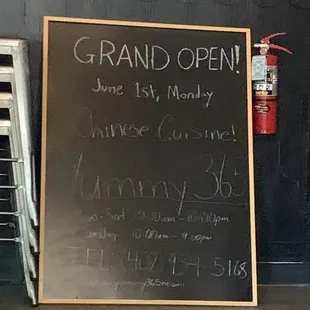 GRAND OPEN!
June 1st, Monday
Chinese Cuisine!
Yummy 365
Mon-Sat 10:30am - 10:00pm
Sunday 10:00am - 9:00pm
TEL (402) 934-5168